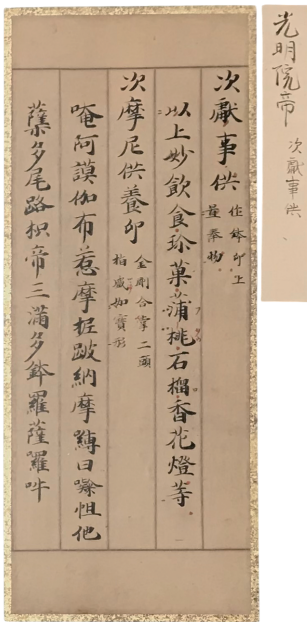 光明院帝 次獻事供
次獻事供 作鉢印上
置奉物
以上妙飲食珍菓蒲桃石榴香花燈等
次摩尼供養印 金剛合掌二頭
指如寶形
唵阿謨伽布惹摩抳跛納摩縛日㘑怛他
蘖多尾路枳帝三滿多鉢羅薩羅吽